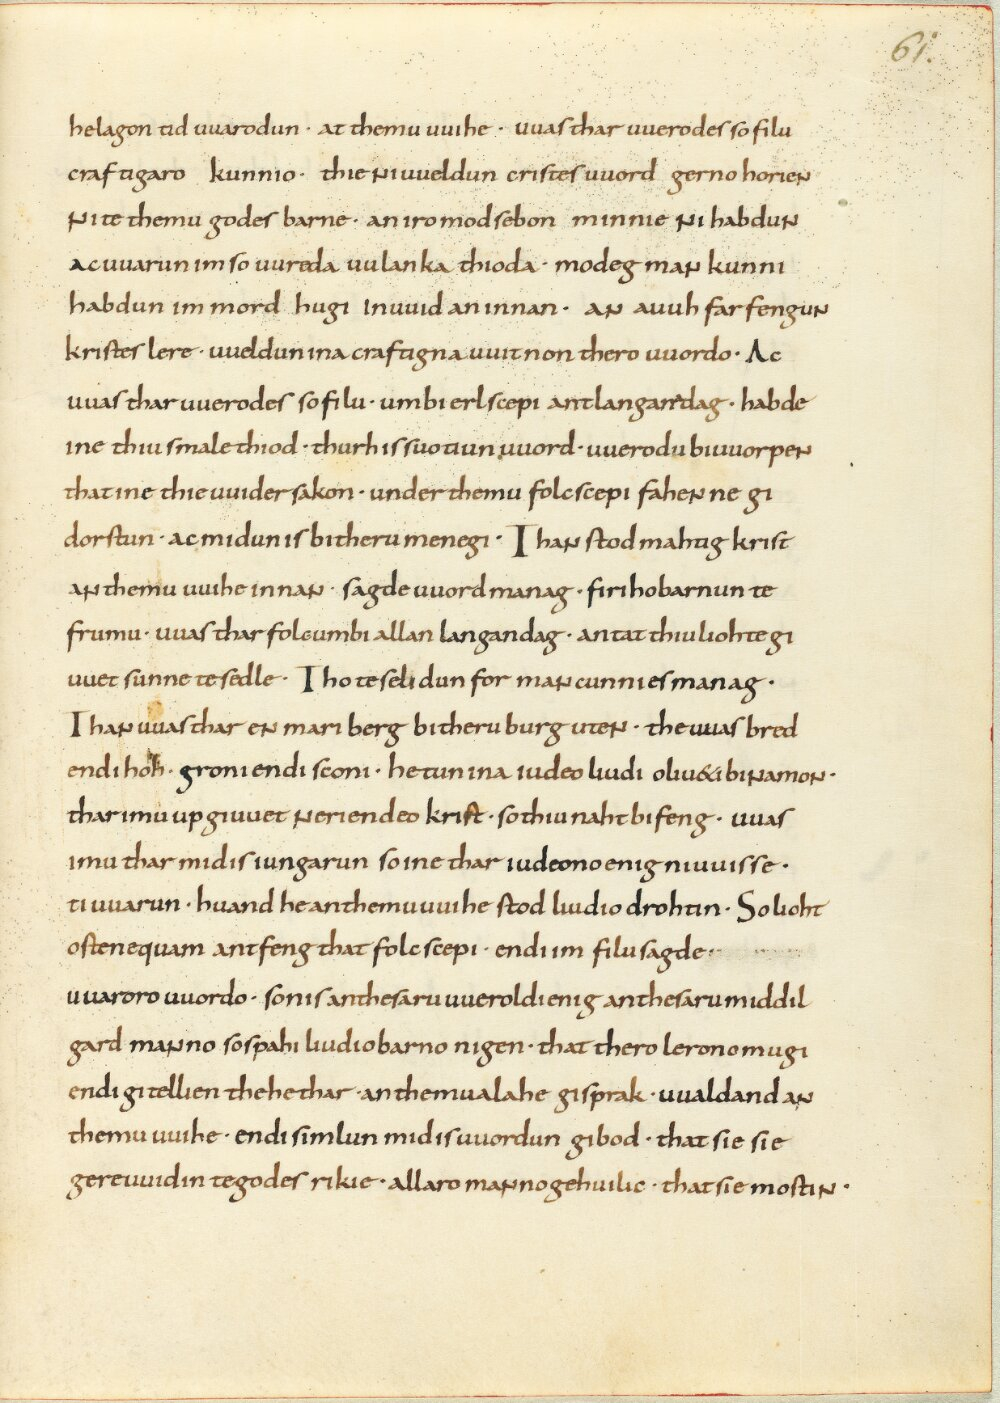 61.
helagon tid uuarodun · at themu uuihe · uuas thar uuerodes so filu
craftigaro kunnio · thie ni uueldun cristes uuord gerno horien
ni te themu godes barne · an iro modsebon minnie ni habdun
ac uuarun im so uureda uulanka thioda · modeg man kunni
habdun im mord hugi inuuid an innan · an auuh farfengun
kristes lere · uueldun ina craftigna uuitnon thero uuordo · Ac
uuas thar uuerodes so filu · umbi erlscepi antlangandag · habde
ine thiu smale thiod · thurh is suotiun uuord · uuerodu biuuorpen
that ine thie uuidersakon · under themu folcscepi fahen ne gi
dorstun · ac midun is bi theru menegi · Than stod mahtig krist
an themu uuihe innan · sagde uuord manag · firiho barnun te
frumu · uuas thar folc umbi allan langandag · antat thiu liohte gi
uuet sunne te sedle · Tho te selidun for mancunnies manag ·
Than uuas thar en mari berg bi theru burg uten · the uuas bred
endi hoh · groni endi sconi · hetun ina iudeo liudi oliu&i bi namon ·
thar imu up giuuet neriendeo krist · so thiu naht bifeng · uuas
imu thar mid is iungarun so ine thar iudeono enig ni uuisse ·
ti uuarun · huand he an themu uuihe stod liudio drohtin · So lioht
ostene quam antfeng that folcscepi · endi im filu sagde ·
uuaroro uuordo · so nis an thesaru uueroldi enig an thesaru middil
gard manno so spahi liudio barno nigen · that thero lerono mugi
endi gitellien the he thar · an themu alahe gisprak · uualdand an
themu uuihe · endi simlun mid is uuordun gibod · that sie sie
gereuuidin te godes rikie · allaro manno gehuilic · that sie mostin ·